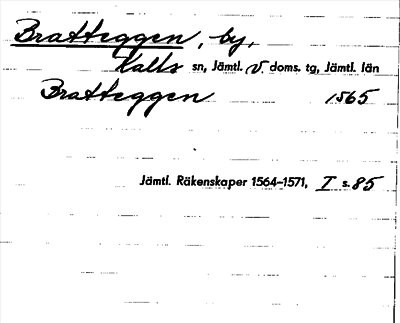 Bratteggen, by,
Kalls sn, Jämtl. v. doms. tg, Jämtl. län
Bratteggen 1565
Jämtl. Räkenskaper 1564–1571, I s. 85